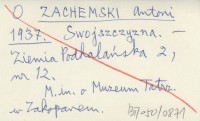 O ZACHEMSKI Antoni
1937. Swojszczyzna. -
Ziemia Podhalańska 2,
nr 12.
M.in. o Muzeum Tatrz.
w Zakopanem.
BJ/080/0871